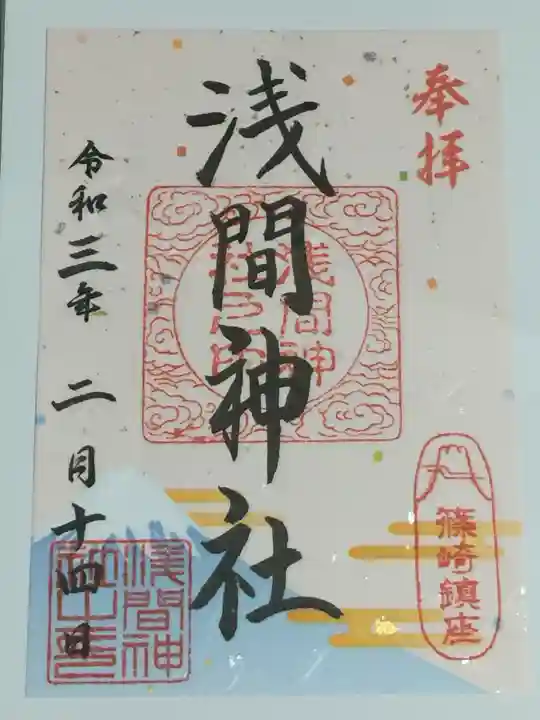 奉拝
浅間神社
浅間神
社之印
篠崎鎮座
令和三年 二月十四日
浅間神